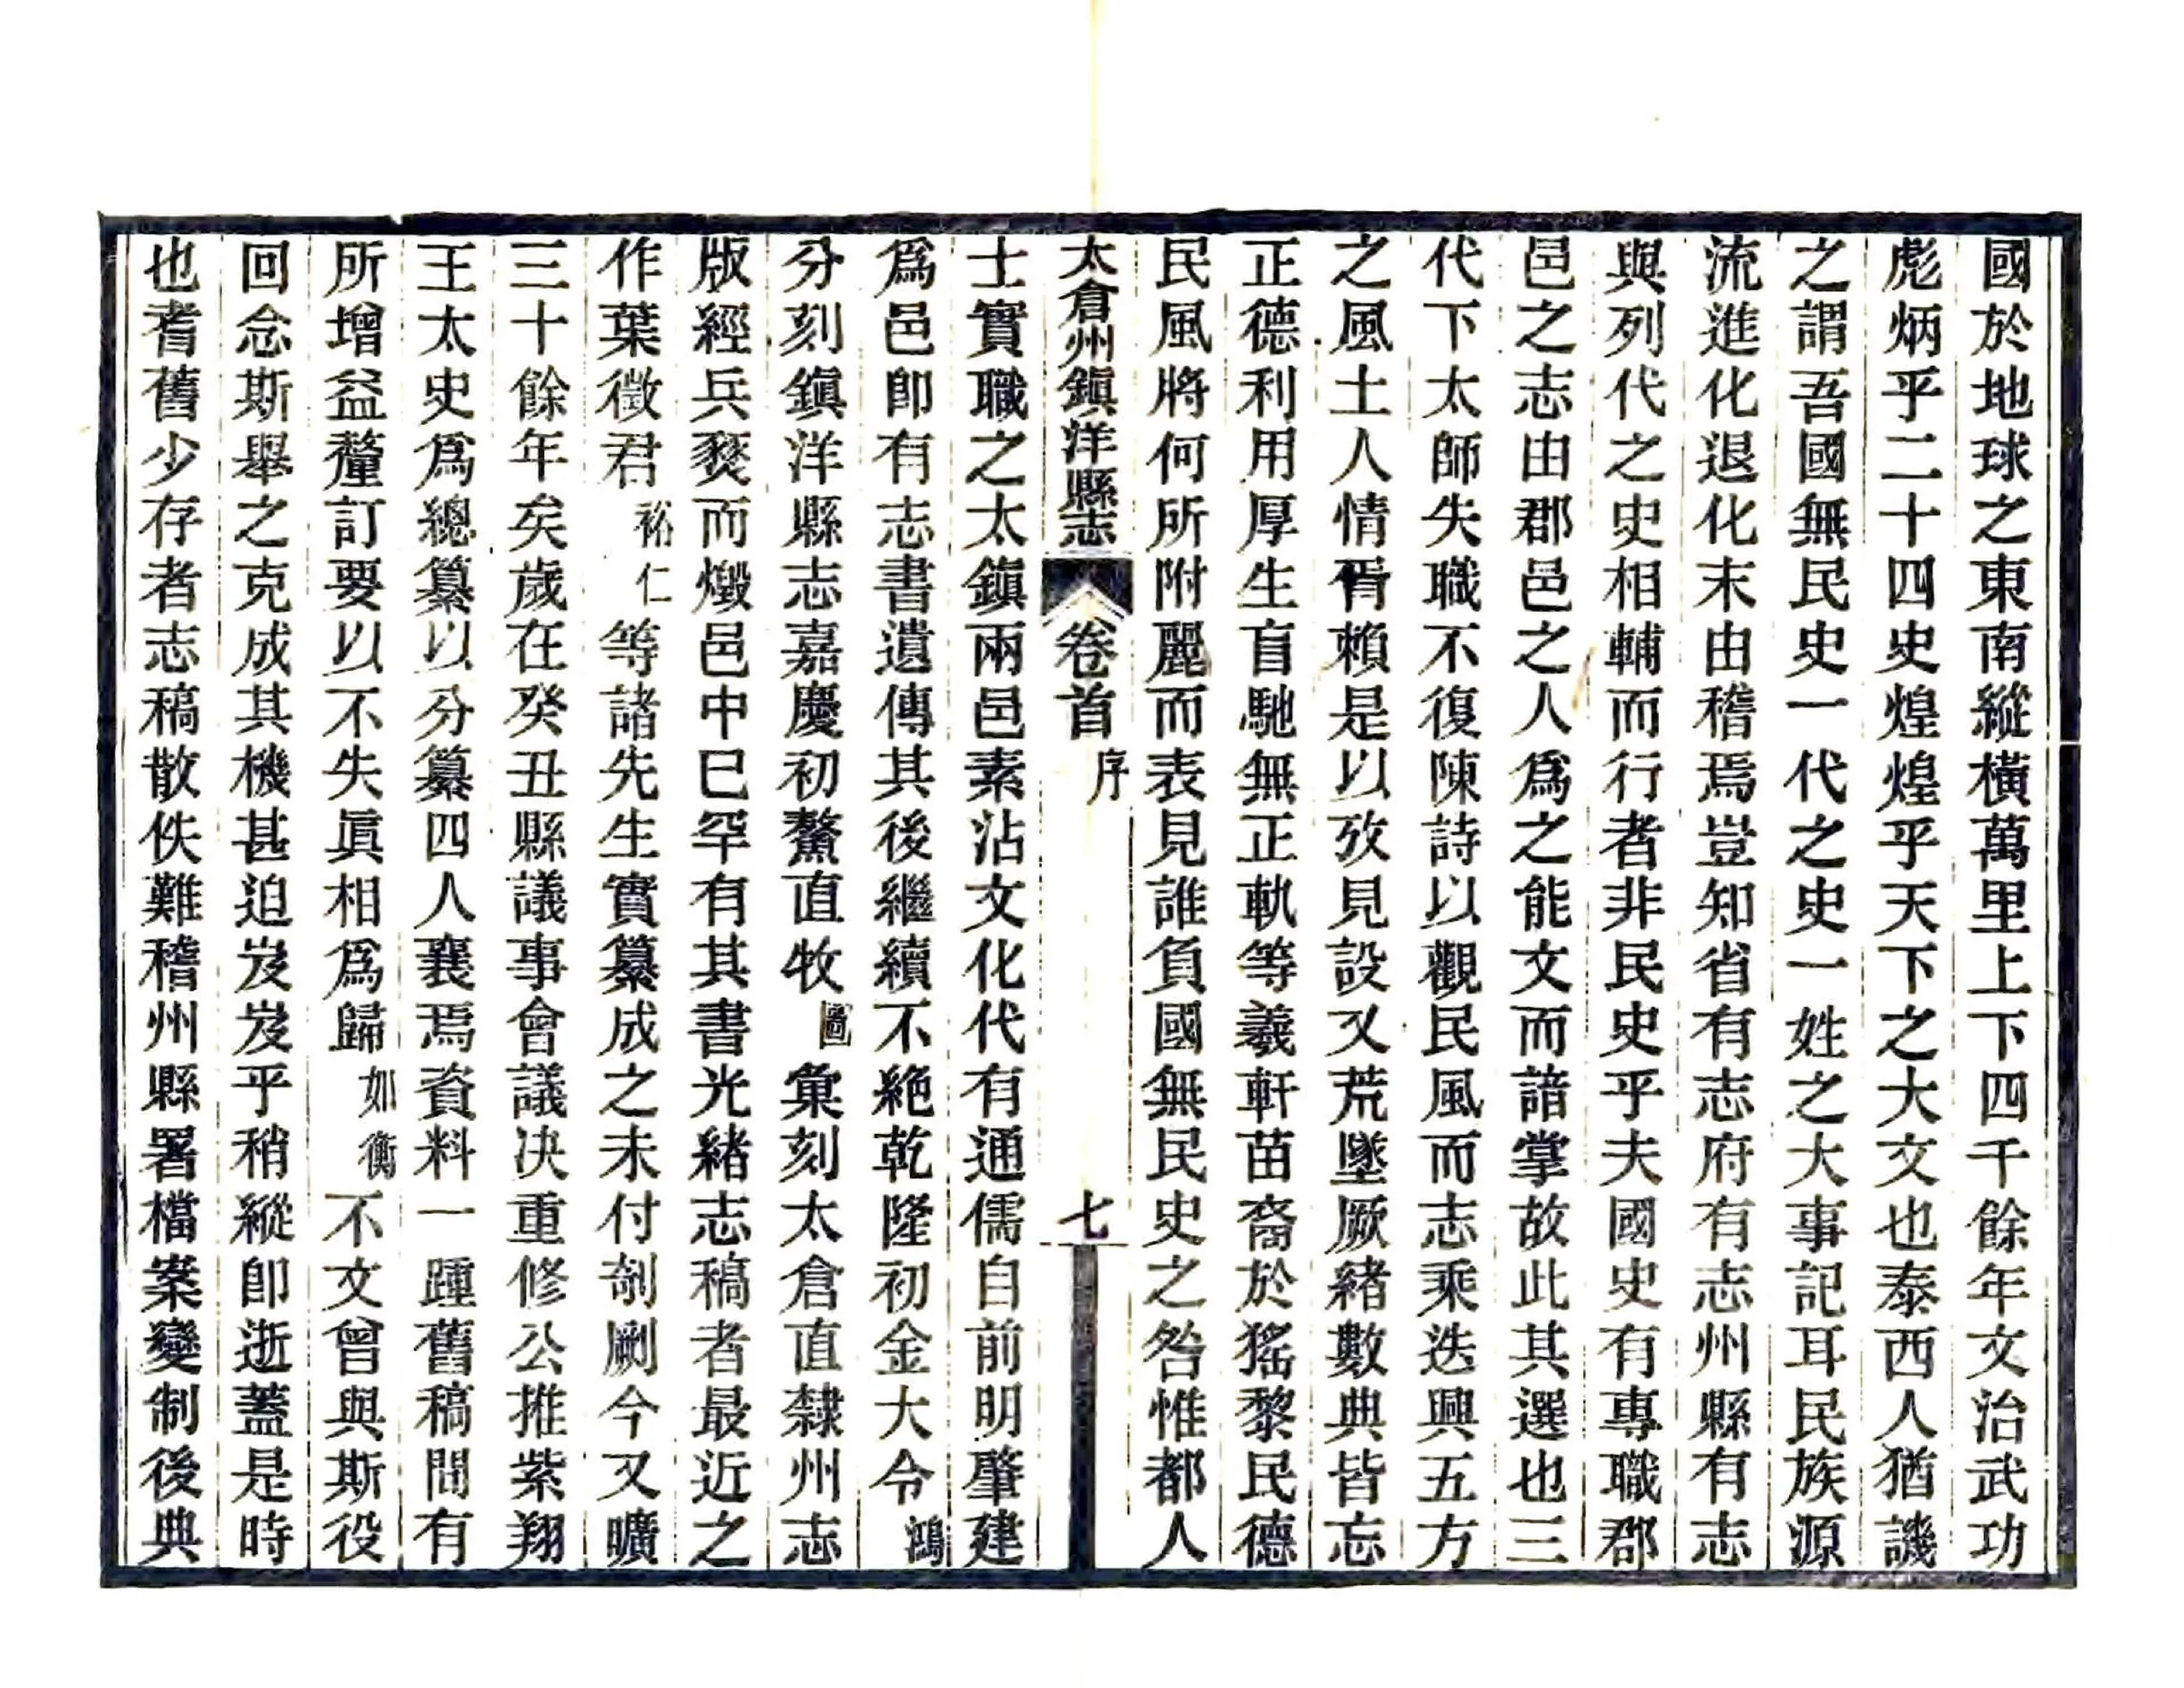 國於地球之東南縱橫萬里上下四千餘年文治武功
彪炳乎二十四史煌煌乎天下之大文也泰西人猶譏
之謂吾國無民史一代之史一姓之大事記耳民族源
流進化退化末由稽焉豈知省有志府有志州縣有志
與列代之史相輔而行者非民史乎夫國史有專職郡
邑之志由郡邑之人爲之能文而諳掌故此其選也三
代下太師失職不復陳詩以觀民風而志乘迭興五方
之風土人情胥賴是以攷見設又荒墜厥緒數典皆忘
正德利用厚生盲馳無正軌等羲軒苗裔於猺黎民德
民風將何所附麗而表見誰負國無民史之咎惟都人
太倉州鎭洋縣志 卷首 序 七
士實職之太鎭兩邑素沾文化代有通儒自前明肇建
爲邑卽有志書遺傳其後繼續不絶乾隆初金大令鴻
分刻鎭洋縣志嘉慶初鰲直牧圖彙刻太倉直隸州志
版經兵燹而燬邑中已罕有其書光緒志稿者最近之
作葉徵君裕仁等諸先生實纂成之未付剞劂今又曠
三十餘年矣歲在癸丑縣議事會議决重修公推紫翔
王太史爲總纂以分纂四人襄焉資料一踵舊稿間有
所增益釐訂要以不失眞相爲歸如衡不文曾與斯役
回念斯舉之克成其機甚迫岌岌乎稍縱卽逝蓋是時
也耆舊少存者志稿散佚難稽州縣署檔案變制後典